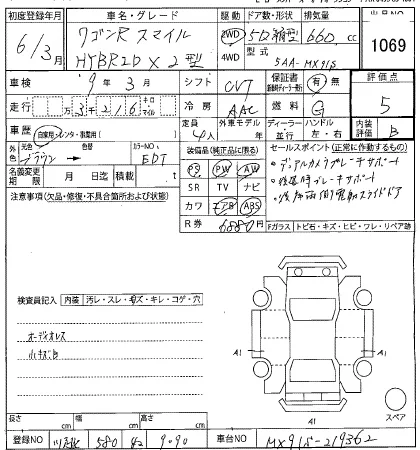 初度登録年月 車名・グレード 駆動 ドア数・形状 排気量 出品NO
6/3月 ワゴンR スマイル 2WD 5D 箱型 660 cc 1069
HYBRID X 2型 4WD 型式 5AA-MX91S
車検 9年 3月 シフト CVT 保証書 有・無 評価点
走行 万3千216 キロ マイル 冷房 AAC 燃料 G 5
車歴 自家用・レンタ・事業用( ) 定員 4人 外車モデル年 ディーラー・並行 ハンドル 左・右 内装評価 B
元色 ブラウン 色替 カラーNO EDT
装備品(純正品に限る) セールスポイント(正常に作動するもの)
名義変更期限 月 日迄 積載 t
PS PW AW
SR TV ナビ
カワ エアB ABS
R券 6880円
・デュアルカメラブレーキサポート
・後退時ブレーキサポート
・後席両側電動スライドドア
注意事項(欠品・修復・不具合箇所および状態)
Fガラス トビ石・キズ・ヒビ・フレ・リペア跡
検査員記入 内装 汚レ・スレ・毛ズ・キレ・コゲ・穴
オーディオレス
小キズ凹
A1 A1
A1
スペア
長さ cm 幅 cm 高さ cm
登録NO 580 9090 車台NO MX91S-219362